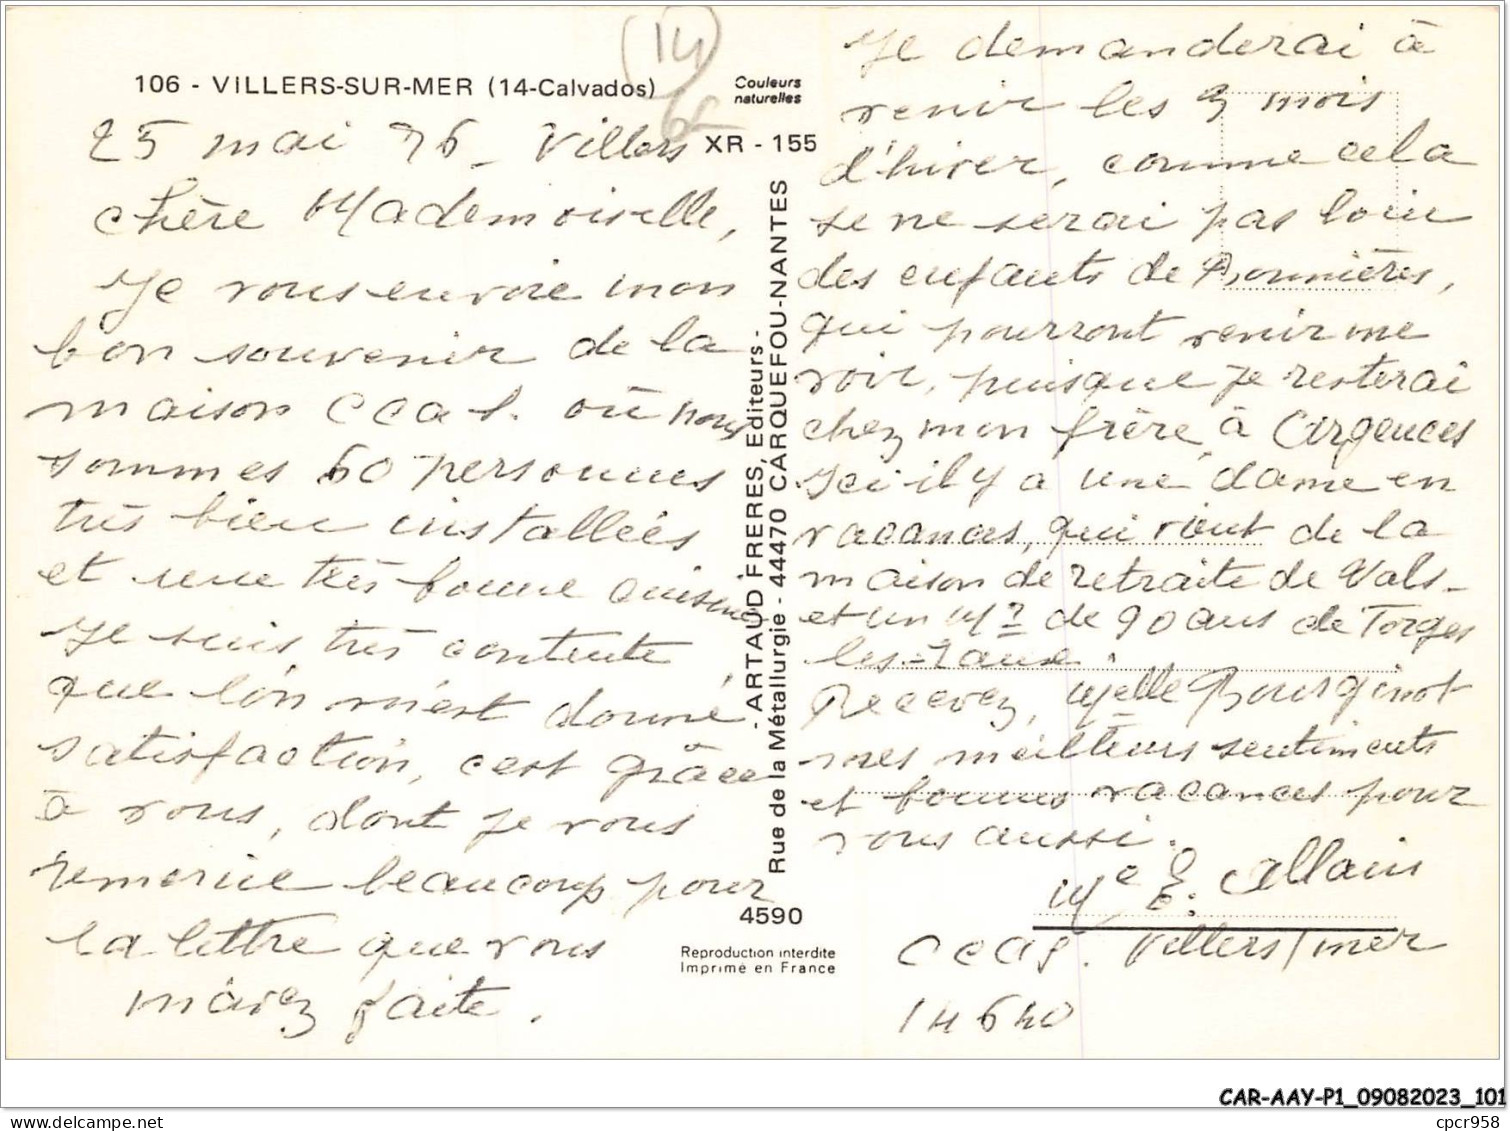 (14)
106 - VILLERS-SUR-MER (14-Calvados)
Couleurs
naturelles
XR - 155
25 mai 76 - Villers
Chère Mademoiselle,
Je vous envoie mon
bon souvenir de la
maison CCAS. où nous
sommes 60 personnes
très bien installées
et une très bonne cuisine
Je suis très contente
que l'on m'est donné
satisfaction, c'est grâce
à vous, dont je vous
remercie beaucoup pour
la lettre que vous
m'avez faite.
- ARTAUD FRERES, Editeurs -
Rue de la Métallurgie - 44470 CARQUEFOU-NANTES
4590
Reproduction interdite
Imprimé en France
Je demanderai à
venir les 3 mois
d'hiver, comme cela
je ne serai pas loin
des enfants de Bonnières,
qui pourront venir me
voir, puisque je resterai
chez mon frère à Argences
Ici il y a une dame en
vacances, qui vient de la
maison de retraite de Vals-
et un Mr de 90 ans de Forges
les-
Recevez, Melle Bourginot
mes meilleurs sentiments
et bonnes vacances pour
vous aussi.
Me E. Allain
CCAS. Villers/mer
14640
CAR-AAY-P1_09082023_101
delcampe.net
cpcr958